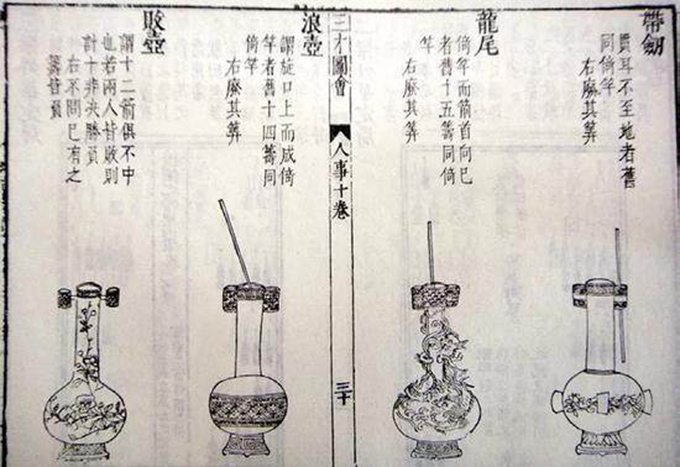 帶劒
貫耳不至地者舊
同倚竿
右廢其筭
龍尾
倚竿而箭首向己
者舊十五籌同倚
竿
右廢其筭
三才圖會
人事十卷
三十
浪壺
謂旋口上而成倚
竿者舊十四籌同
倚竿
右廢其筭
敗壺
謂十二箭俱不中
也若兩人皆敗則
計十非决勝負
右不問已有之
籌皆負